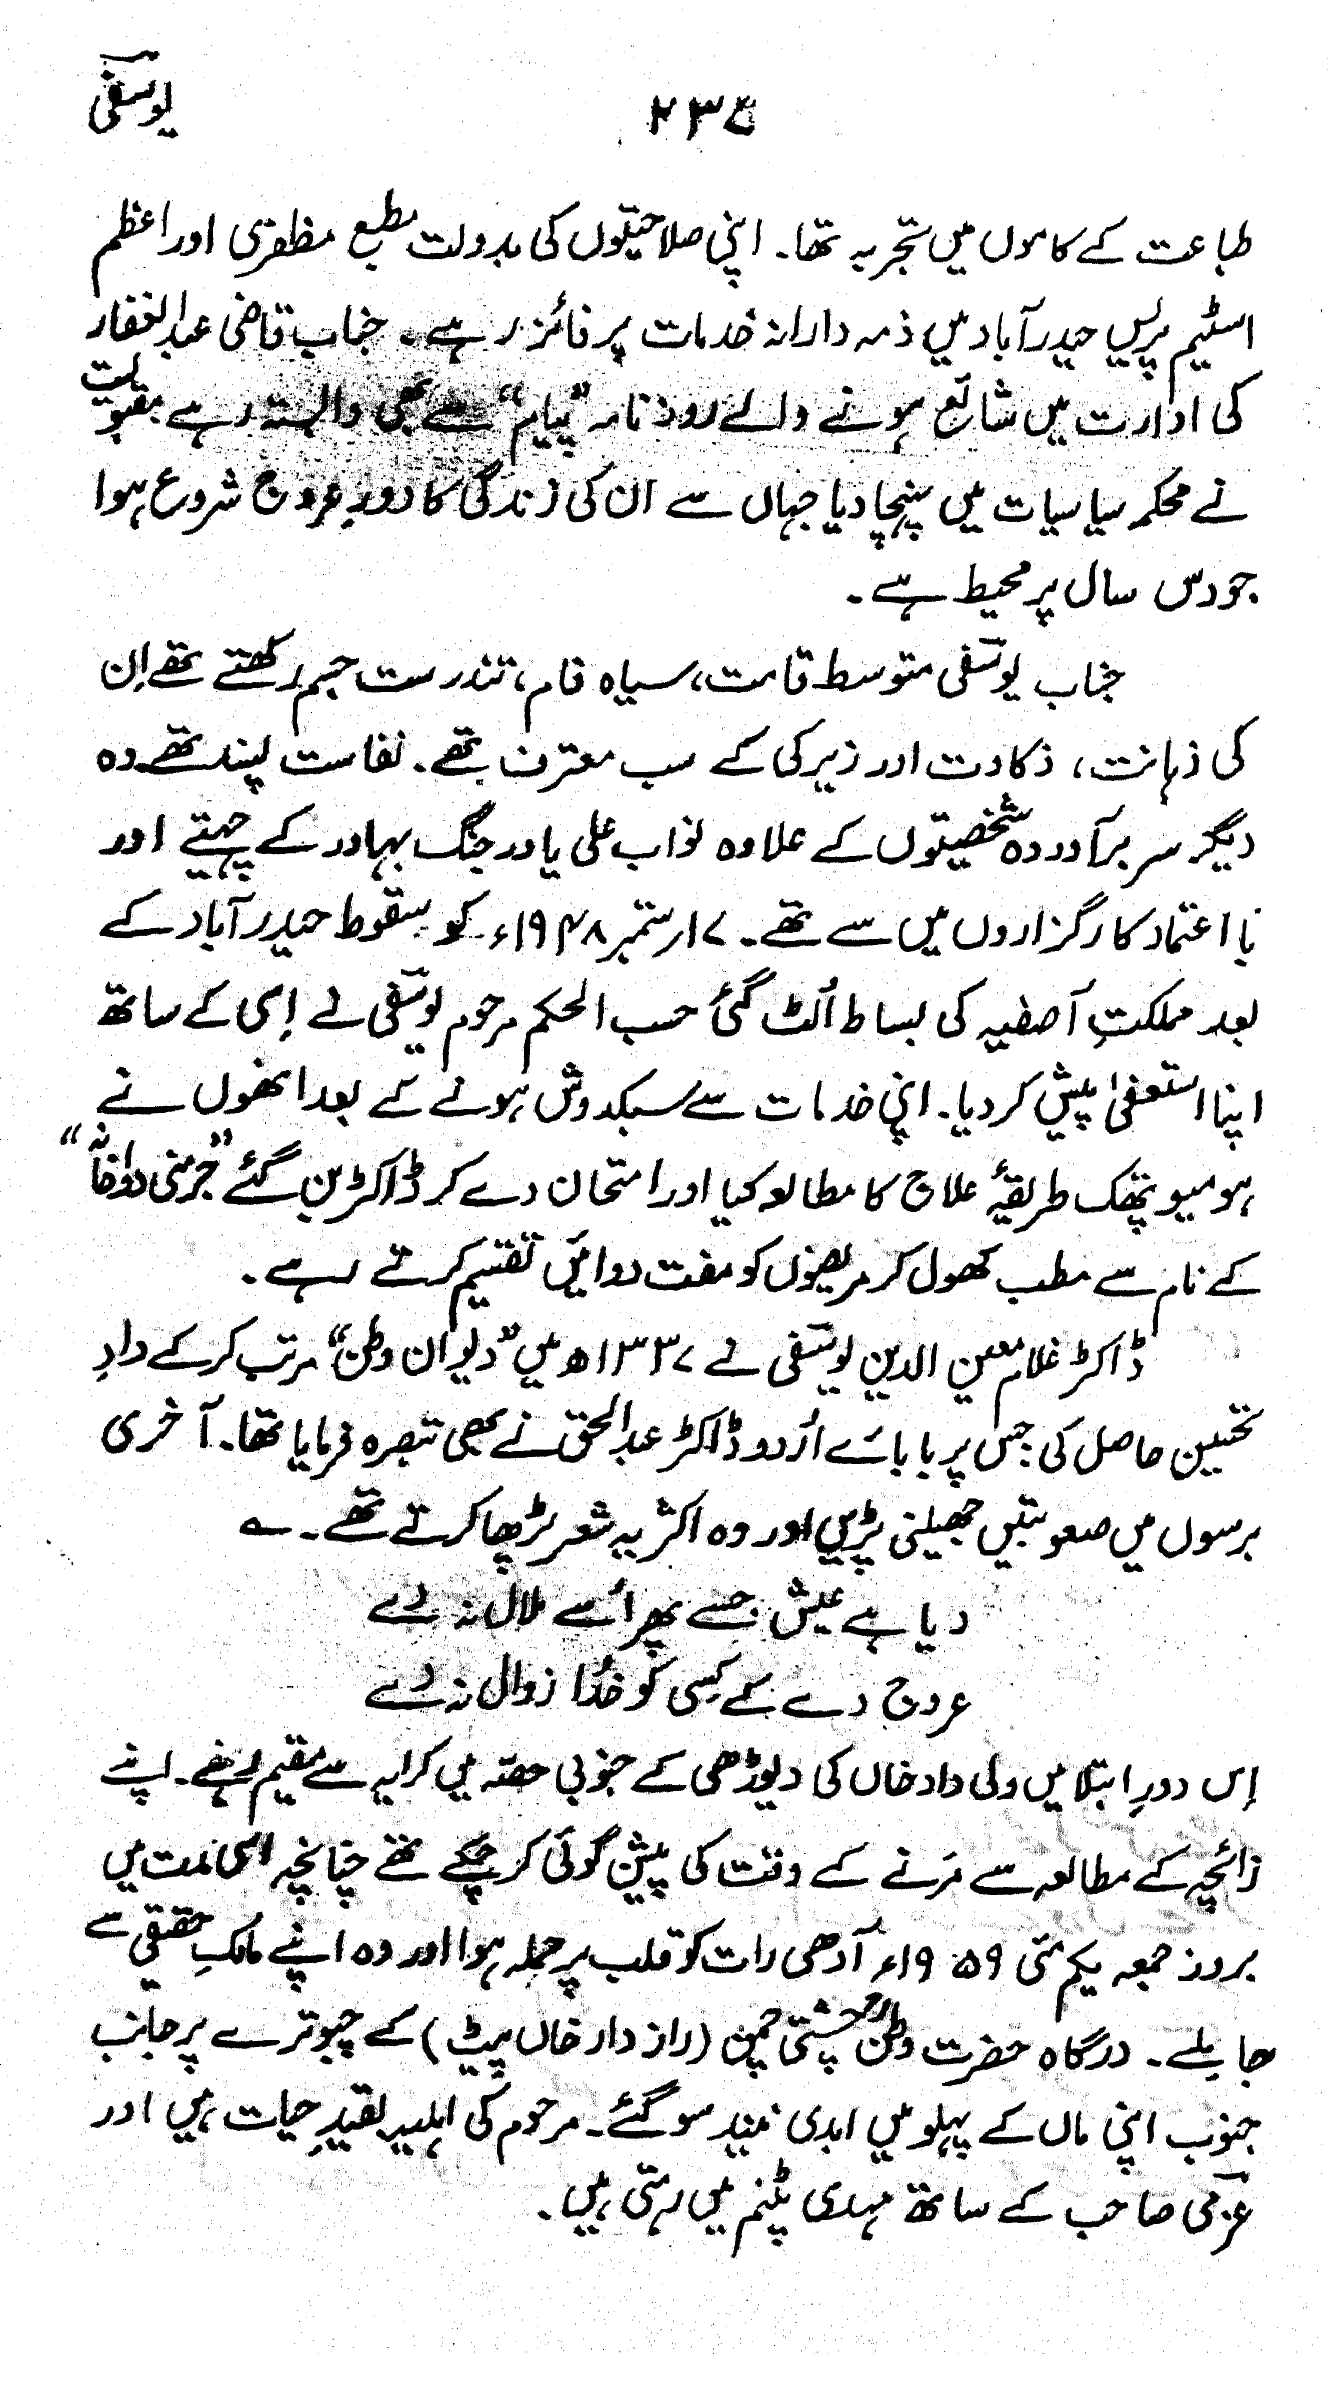 یوسفی
۲۳۵
طباعت کے کاموں میں تجربہ تھا۔ اپنی صلاحیتوں کی بدولت مطبع مظفری اور اعظم
اسٹیم پریس حیدرآباد میں ذمہ دارانہ خدمات پر فائز رہے۔ جناب قاضی عبدالغفار
کی ادارت میں شائع ہونے والے روزنامہ "پیام" سے بھی وابستہ رہے مقبولیت
نے محکمہ سیاسیات میں پہنچا دیا جہاں سے ان کی زندگی کا دورِ عروج شروع ہوا
جو دس سال پر محیط ہے۔
جناب یوسفی متوسط قامت، سیاہ فام، تندرست جسم رکھتے تھے اِن
کی ذہانت، ذکاوت اور زیرکی کے سب معترف تھے۔ نفاست پسند تھے وہ
دیگر سربرآوردہ شخصیتوں کے علاوہ نواب علی یاور جنگ بہادر کے چہیتے اور
با اعتماد کارگزاروں میں سے تھے۔ ۱۷ ستمبر ۱۹۴۸ء کو سقوط حیدرآباد کے
بعد مملکتِ آصفیہ کی بساط اُلٹ گئی حسب الحکم مرحوم یوسفی نے اِسی کے ساتھ
اپنا استعفیٰ پیش کر دیا۔ اپنی خدمات سے سبکدوش ہونے کے بعد انھوں نے
ہومیوپتھک طریقۂ علاج کا مطالعہ کیا اور امتحان دے کر ڈاکٹر بن گئے "جرمنی دواخانہ"
کے نام سے مطب کھول کر مریضوں کو مفت دوائیں تقسیم کرتے رہے۔
ڈاکٹر غلام معین الدین یوسفی نے ۱۳۳۷ھ میں "دیوان وطن" مرتب کر کے دادِ
تحسین حاصل کی جس پر بابائے اُردو ڈاکٹر عبدالحق نے بھی تبصرہ فرمایا تھا۔ آخری
برسوں میں صعوبتیں جھیلنی پڑیں اور وہ اکثر یہ شعر پڑھا کرتے تھے۔ ؎
دیا ہے عیش جسے پھر اُسے ملال نہ دے
عروج دے کے کسی کو خُدا زوال نہ دے
اِس دورِ ابتلا میں ولی داد خاں کی دیوڑھی کے جنوبی حصّہ میں کرایہ سے مقیم رہے۔ اپنے
زائچہ کے مطالعہ سے مرنے کے وقت کی پیشن گوئی کر چکے تھے چنانچہ اسی مدت میں
بروز جمعہ یکم مئی ۱۹۵۹ء آدھی رات کو قلب پر حملہ ہوا اور وہ اپنے مالکِ حقیقی سے
جا ملے۔ درگاہ حضرت وطنؒ چشتی چمن (رازدار خاں پیٹ) کے چبوترے پر جانب
جنوب اپنی ماں کے پہلو میں ابدی نیند سو گئے۔ مرحوم کی اہلیہ بقیدِ حیات ہیں اور
عزمی صاحب کے ساتھ مہدی پٹنم میں رہتی ہیں۔